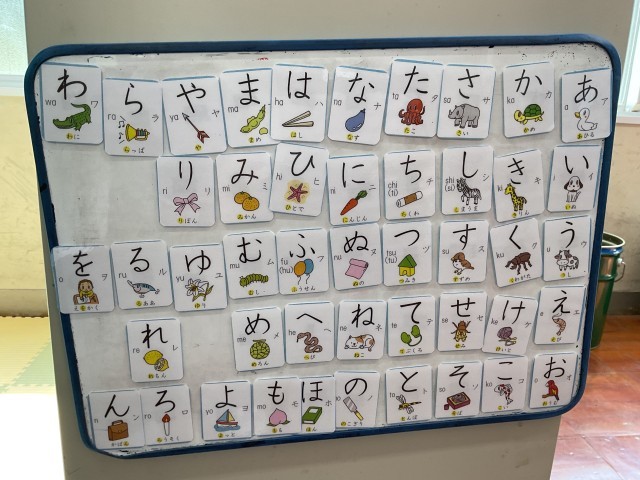 わ ら や ま は な た さ か あ
wa ワ ra ya ヤ ma ha ハ na ナ ta タ sa サ ka カ a ア
わに らっぱ や まめ はし なす たこ さい かめ あひる
り み ひ に ち し き い
ri リ mi ミ hi ヒ ni ニ chi (ti) チ shi (si) シ キ i イ
りぼん みかん ひとで にんじん ちくわ しまうま きりん いぬ
を る ゆ む ふ ぬ つ す く う
o ヲ ru ル yu ユ mu ム fu (hu) フ nu ヌ tsu (tu) ツ su ス ku ク u ウ
ゆり むし ふうせん ぬの つみき すずめ くわがた うし
れ め へ ね て せ け え
re レ me メ he ヘ ne ネ te テ se セ ke ケ e エ
れもん めろん へび ねこ てぶくろ せみ けいと えび
ん ろ よ も ほ の と そ こ お
n ン ro ロ yo ヨ mo モ ho ホ ノ to ト so ソ ko コ o オ
かばん ろうそく よっと もも ほん のこぎり とんぼ そば こい